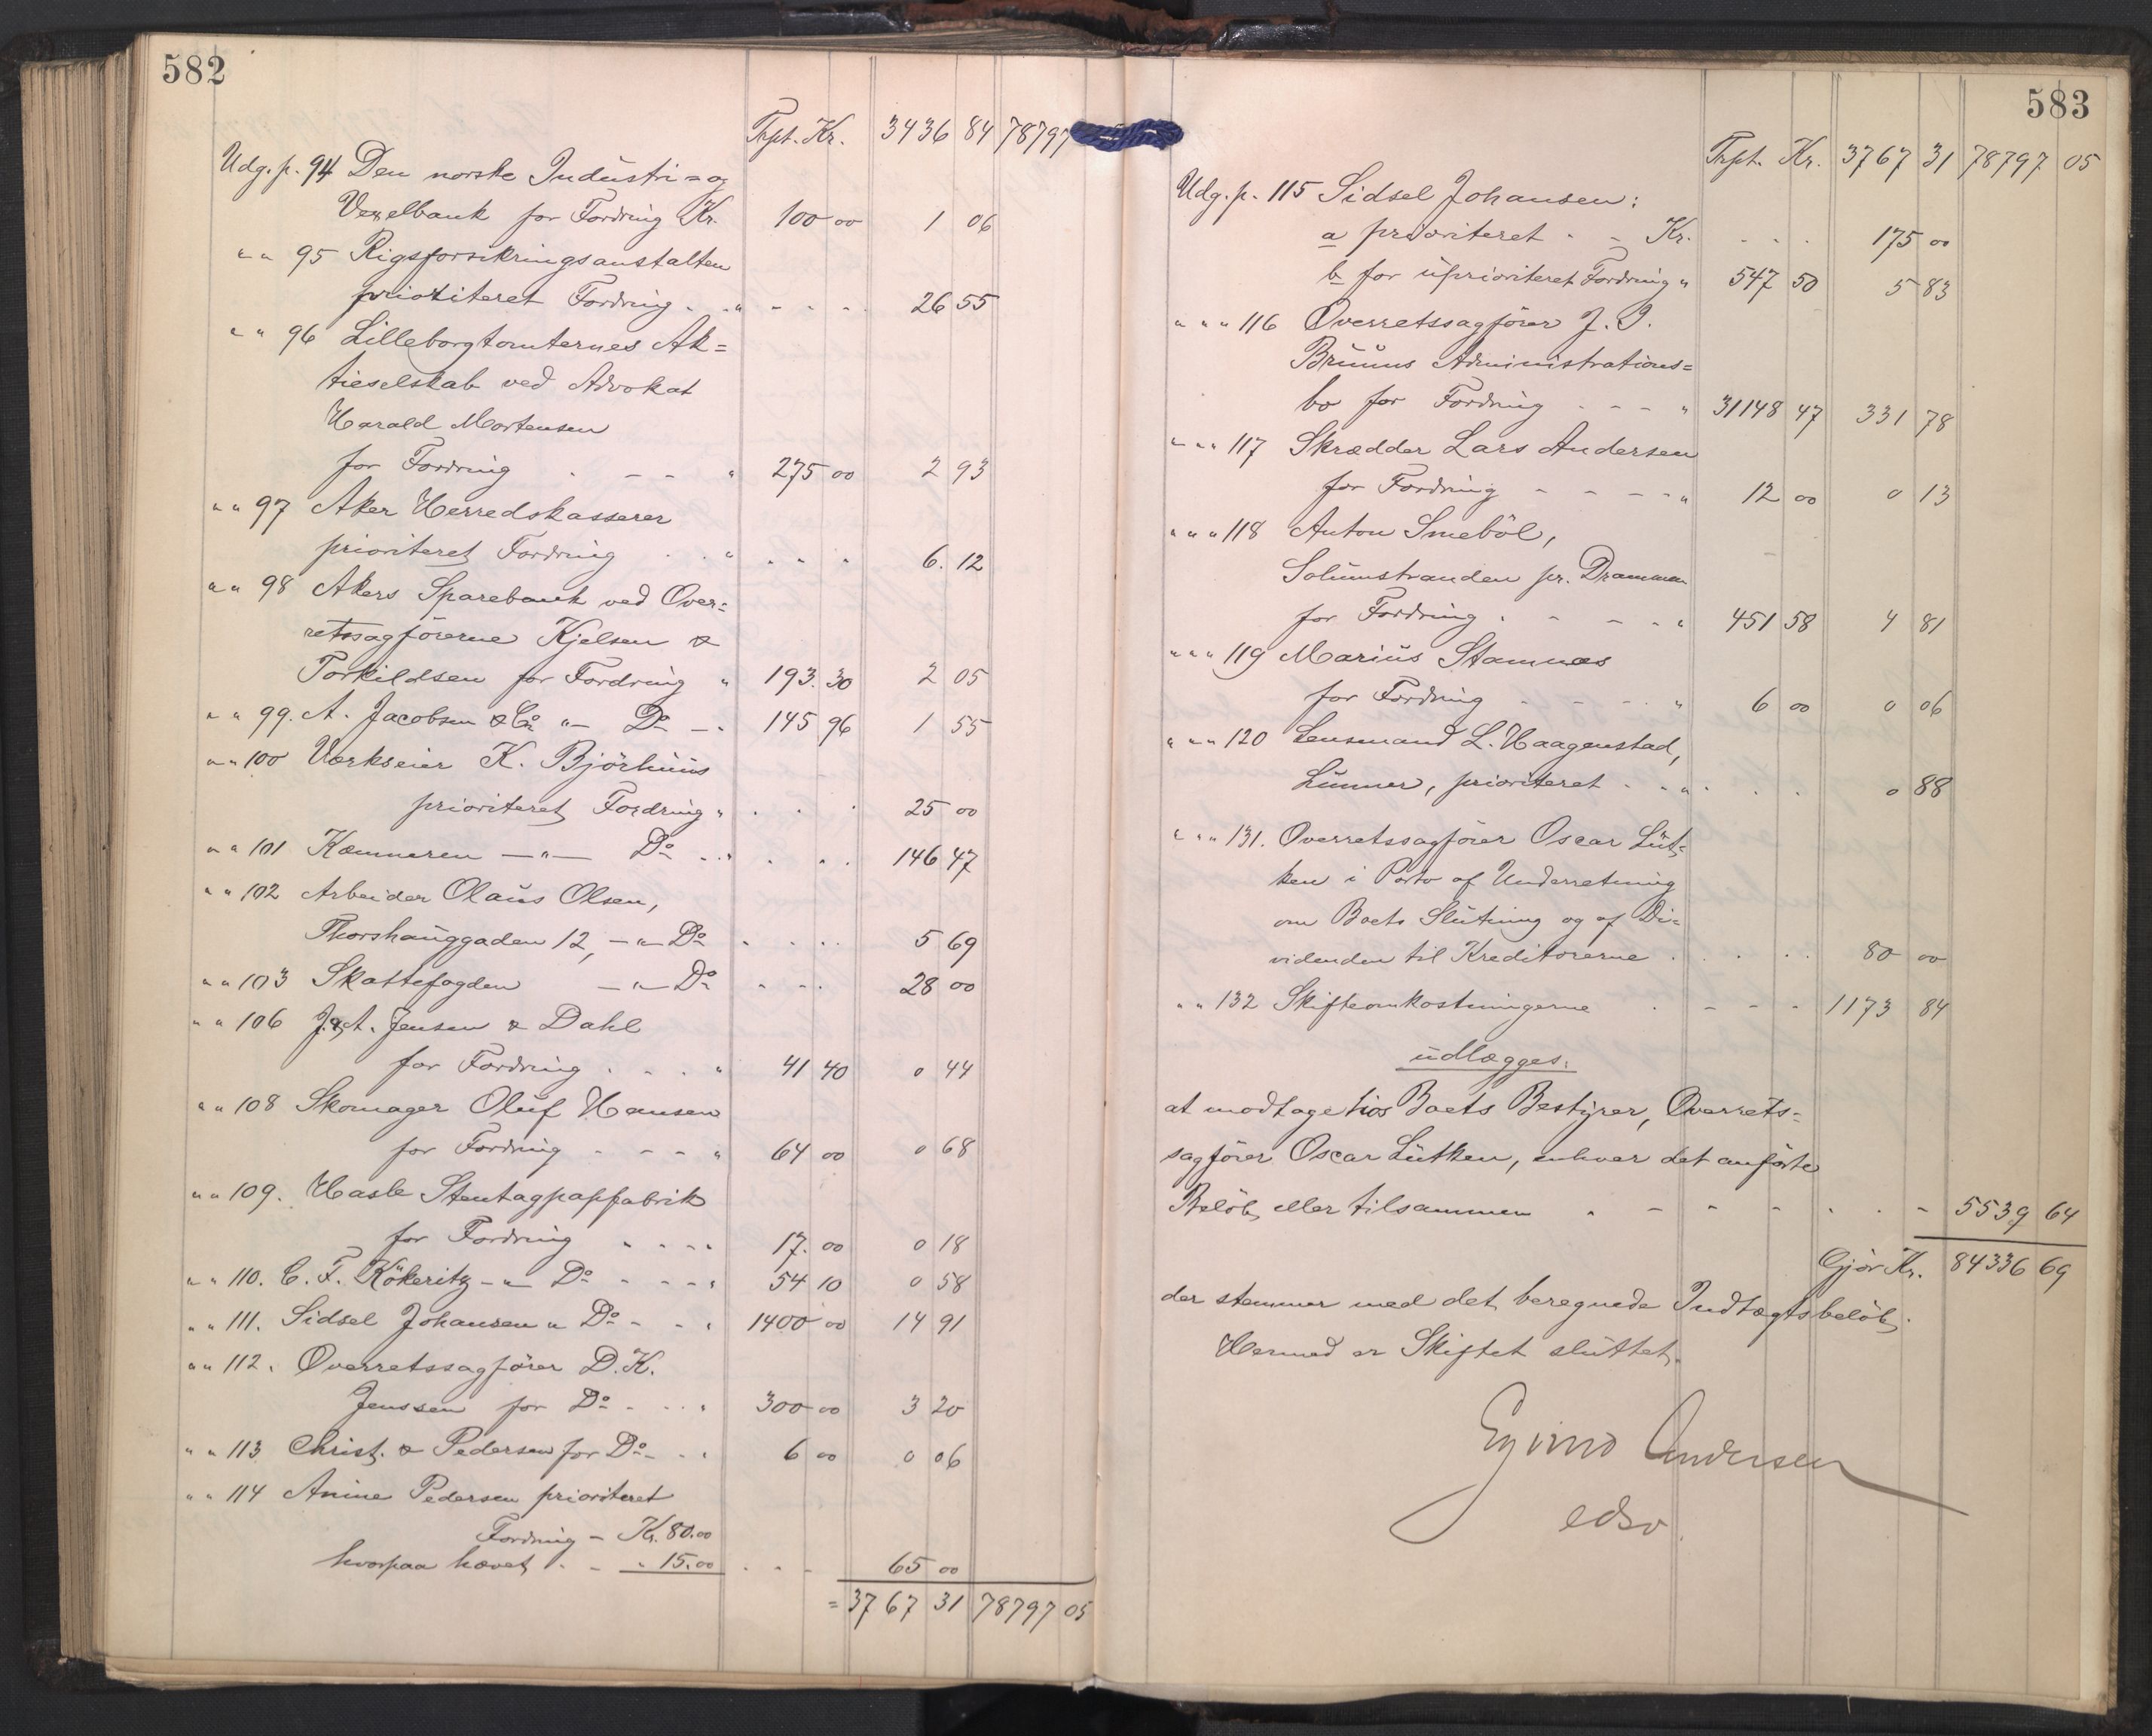 582
Trpt. Kr. 3436 84 78797
Udg. p. 94 Den norske Industri- og
Vexelbank for Fordring Kr. 100 00 1 06
" " 95 Rigsforsikringsanstalten
prioriteret Fordring . . " - - - - 26 55
" " 96 Lilleborgtomternes Ak=
tieselskab ved Advokat
Harald Mortensen
for Fordring . - - " 275 00 2 93
" " 97 Aker Herredskasserer
prioriteret Fordring . . " . . . 6. 12
" " 98 Akers Sparebank ved Over=
retssagförerne Kjelsen &
Torkildsen for Fordring " 193. 30 2 05
" " 99. A. Jacobsen & Co "- Do - . 145 96 1 55
" " 100 Værkseier K. Björhuus
prioriteret Fordring " . . . 25 00
" " 101 Kæmneren —"— Do . . . . . 146 47
" " 102 Arbeider Olaus Olsen,
Thorshauggaden 12, -"- Do . . . . 5 69
" " 103 Skattefogden -"- Do - - - 28 00
" " 106 J. & A. Jensen & Dahl
for Fordring . . . " 41 40 0 44
" " 108 Skomager Oluf Hansen
for Fordring - - - " 64 00 0 68
" " 109. Hasle Stentagpapfabrik
for Fordring . . . . 17. 00 0 18
" " 110. C. F. Kökeritz -"- Do - - - " 54 10 0 58
" " 111. Sidsel Johansen " Do - - " 1400 00 14 91
" " 112. Overretssagförer D. K.
Jenssen for Do - . . " 300 00 3 20
" " 113 Christ. & Pedersen for Do - . " 6 00 0 06
" " 114 Anine Pedersen prioriteret
Fordring - Kr. 80.00
hvorpaa hævet . - " 15.00 . - - 65 00
= 3767 31 78797 05
583
Trpt. Kr. 3767 31 78797 05
Udg. p. 115 Sidsel Johansen:
a prioriteret - - Kr. - - . 175 00
b for uprioriteret Fordring " 547 50 5 83
" " " 116 Overretssagförer J. I.
Bruuns Administrations=
bo for Fordring - - - " 31148 47 331 78
" " " 117 Skrædder Lars Andersen
for Fordring - - - - " 12 00 0 13
" " " 118 Anton Smeböl,
Solumstranden pr. Drammen
for Fordring . - - - " 451 58 4 81
" " " 119 Marius Stamnes
for Fordring - - - . " 6 00 0 06
" " " 120 Lensmand L. Haagenstad,
Lunner, prioriteret . . " . . . 0 88
" " " 131. Overretssagförer Oscar Lüt=
ken i Porto af Underretning
om Boets Slutning og af Di=
videnden til Kreditorerne . . . . . 80 00
" " 132 Skifteomkostningerne . - - - 1173 84
udlægges:
at modtage hos Boets Bestyrer, Overrets=
sagförer Oscar Lütken, enhver det anförte
Belöb, eller tilsammen - - - - . . - 5539 64
Gjör Kr. 84336 69
der stemmer med det beregnede Indtægtsbelöb.
Hermed er Skiftet sluttet.
Eyvind Andersen
edsv.